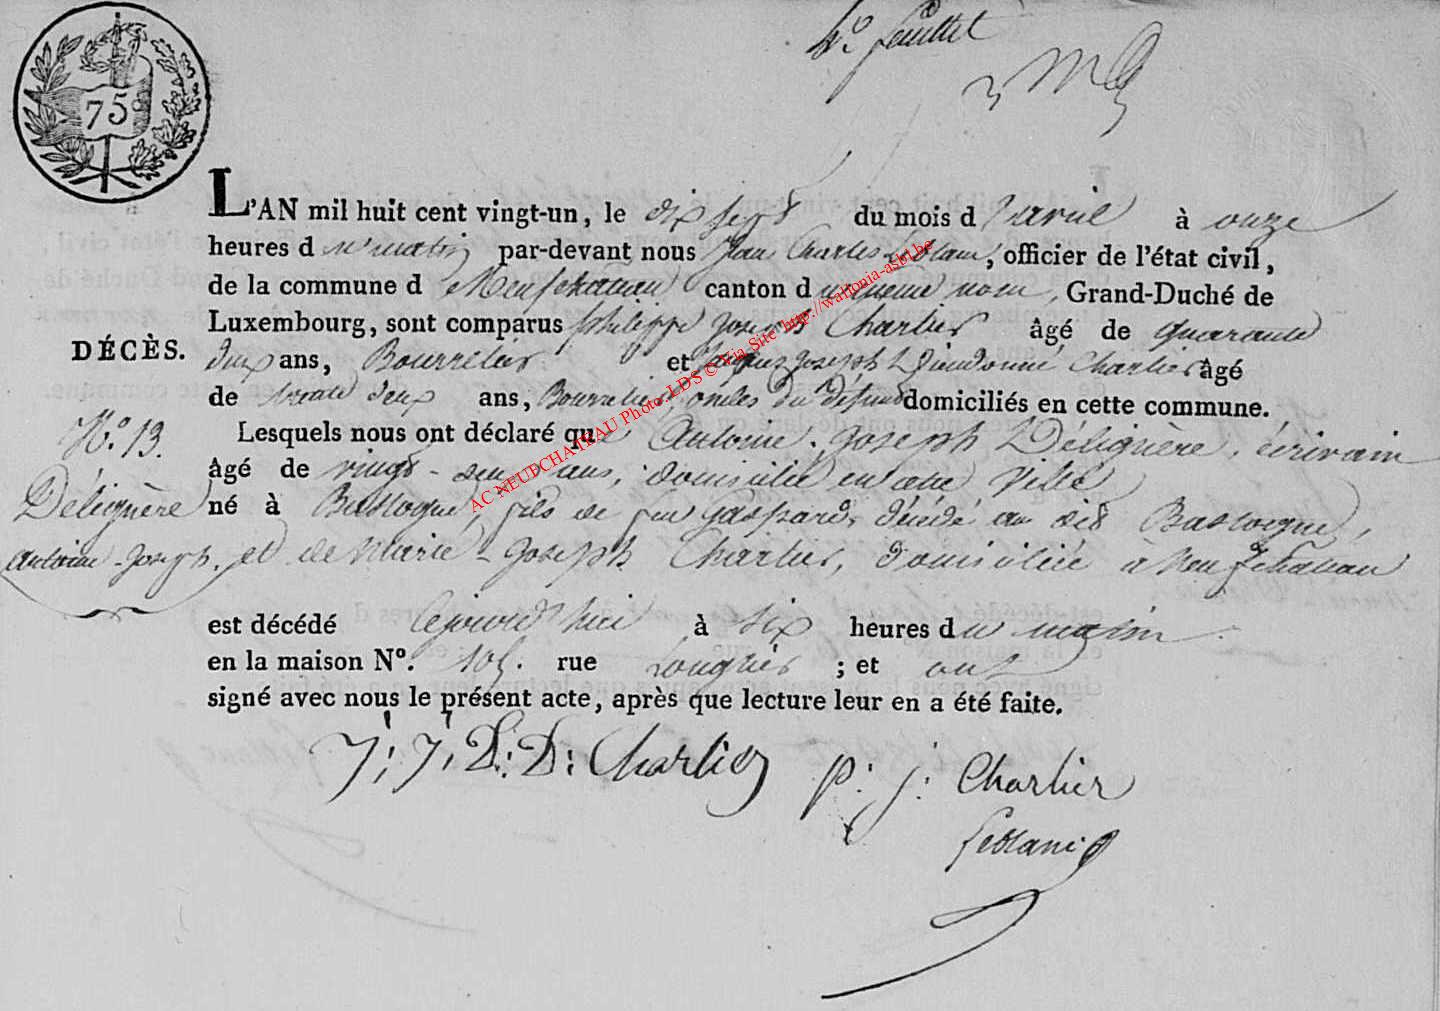 4e feuillet
75
L'AN mil huit cent vingt-un, le dix sept du mois d'avril à onze
heures du matin par-devant nous Jean Charles Leblanc, officier de l'état civil,
de la commune de Neufchateau canton du meme nom, Grand-Duché de
Luxembourg, sont comparus philippe joseph Charlier âgé de quarante
DÉCÈS.
deux ans, Bourrelier et joseph Dieudonné Charlier âgé
de trente deux ans, Bourrelier, oncles du défunt domiciliés en cette commune.
N.o 13.
Lesquels nous ont déclaré que Antoine-joseph Délignère, écrivain
âgé de vingt-deux ans, domicilié en cette ville
Délignère
né à Bastogne, fils de feu Gaspard, décédé au dit Bastogne,
Antoine-joseph.
et de Marie-joseph Charlier, domiciliée à Neufchateau
est décédé cejourd'hui à six heures du matin
en la maison No. 105. rue Longlier ; et ont
signé avec nous le présent acte, après que lecture leur en a été faite.
J: J: D: D: Charlier
p: j: Charlier
Leblanc
AC NEUFCHATEAU Photo. LDS © Via Site http://wallonia-asbl.be